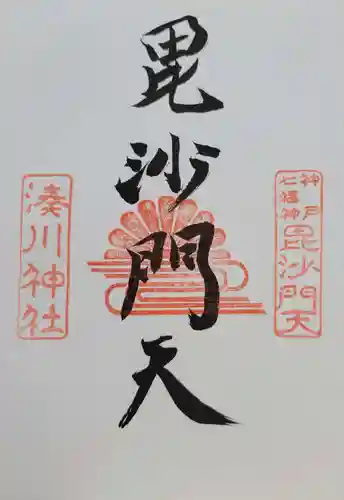 毘沙門天
神戸
七福神
毘沙門天
湊川神社